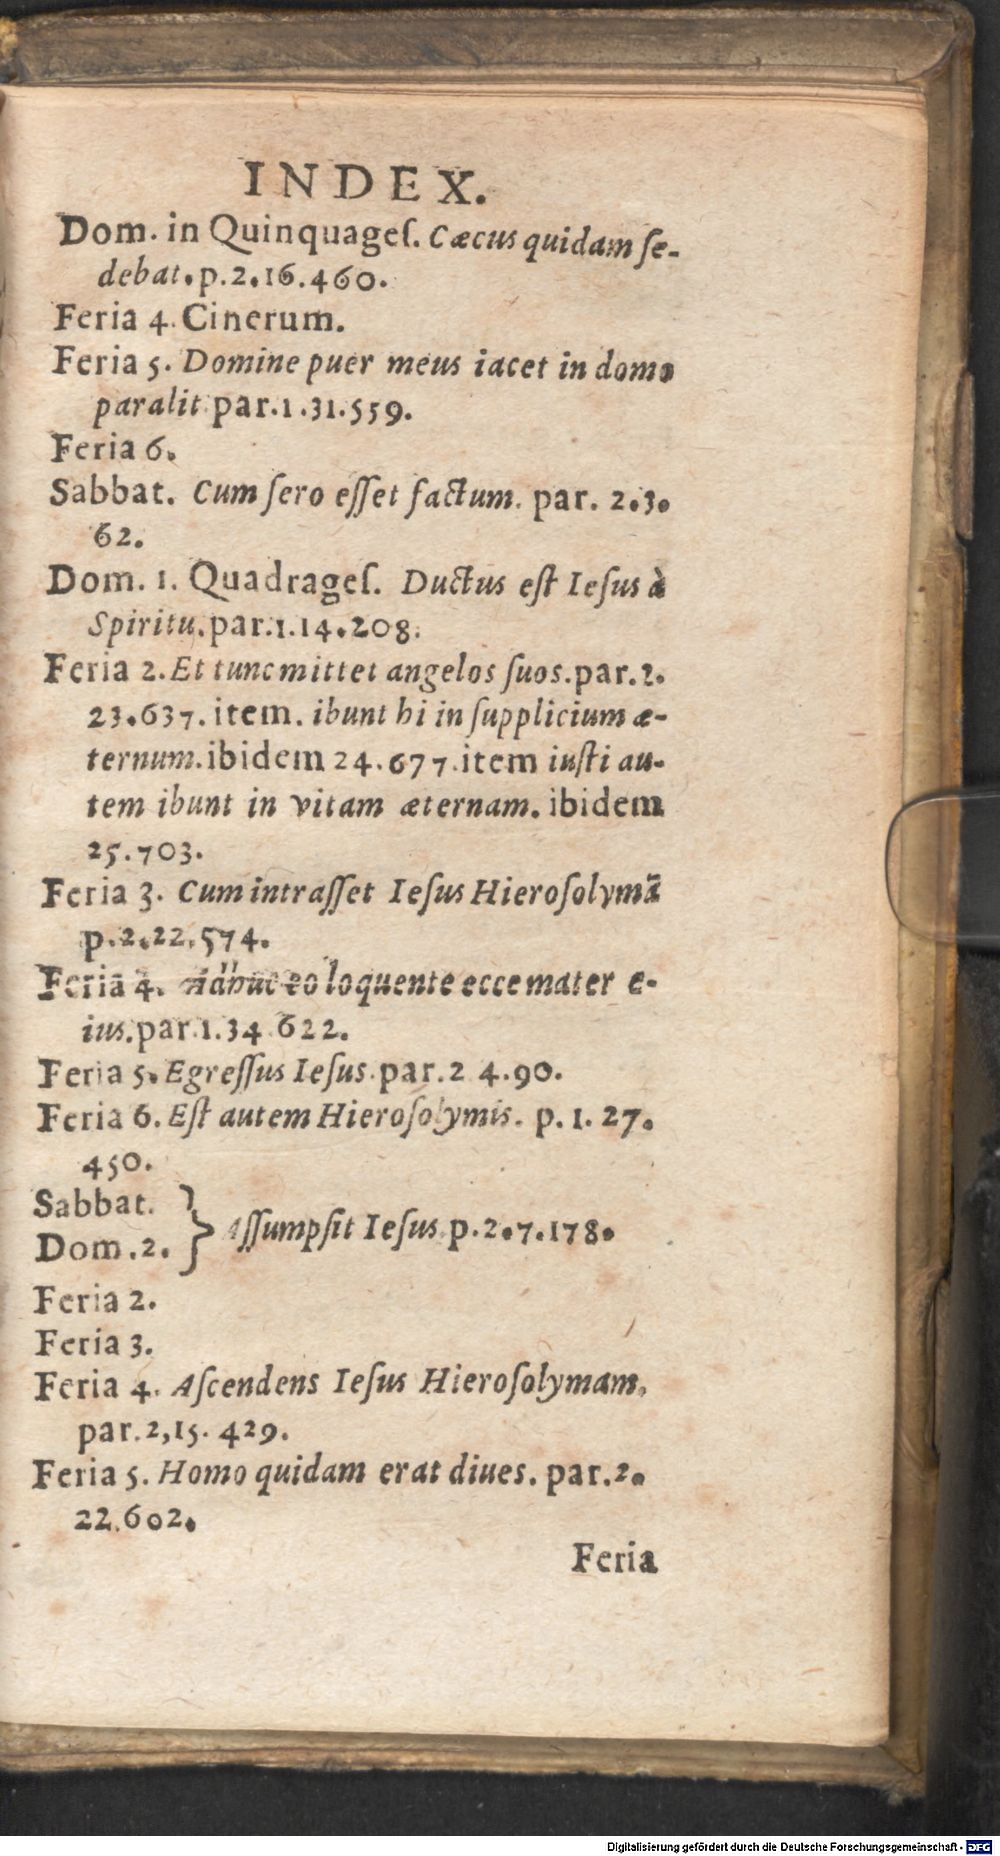 INDEX.
Dom. in Quinquageſ. Cæcus quidam ſe-
debat. p. 2. 16. 460.
Feria 4. Cinerum.
Feria 5. Domine puer meus iacet in domo
paralit. par. 1. 31. 559.
Feria 6.
Sabbat. Cum ſero eſſet factum. par. 2. 3.
62.
Dom. 1. Quadrageſ. Ductus eſt Ieſus à
Spiritu. par. 1. 14. 208.
Feria 2. Et tunc mittet angelos ſuos. par. 2.
23. 637. item. ibunt hi in ſupplicium æ-
ternum. ibidem 24. 677. item iuſti au-
tem ibunt in vitam æternam. ibidem
25. 703.
Feria 3. Cum intraſſet Ieſus Hieroſolymã
p. 2. 22. 574.
Feria 4. Adhuc eo loquente ecce mater e-
ius. par. 1. 34 622.
Feria 5. Egreſſus Ieſus. par. 2 4. 90.
Feria 6. Eſt autem Hieroſolymis. p. 1. 27.
450.
Sabbat.
Dom. 2. } Aſſumpſit Ieſus. p. 2. 7. 178.
Feria 2.
Feria 3.
Feria 4. Aſcendens Ieſus Hieroſolymam,
par. 2, 15. 429.
Feria 5. Homo quidam erat diues. par. 2.
22. 602.
Feria
Digitalisierung gefördert durch die Deutsche Forschungsgemeinschaft - DFG